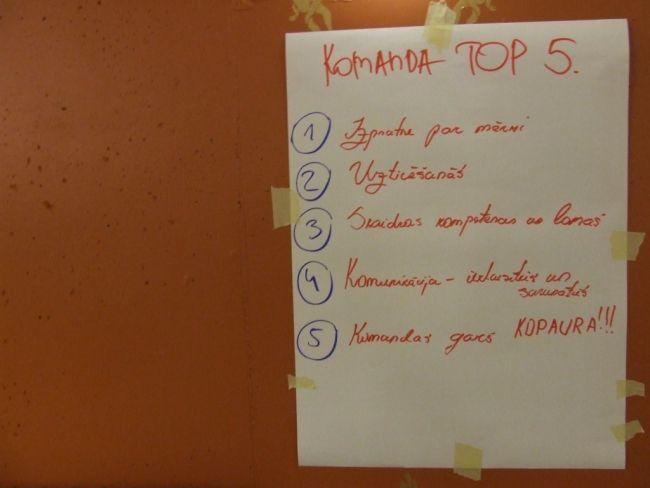 KOMANDA TOP 5.
1 Izpratne par mērķi
2 Uzticēšanās
3 Skaidras kompetences un lomas
4 Komunikācija - ieklausīties un
sarunāties
5 Komandas gars KOPAURA!!!